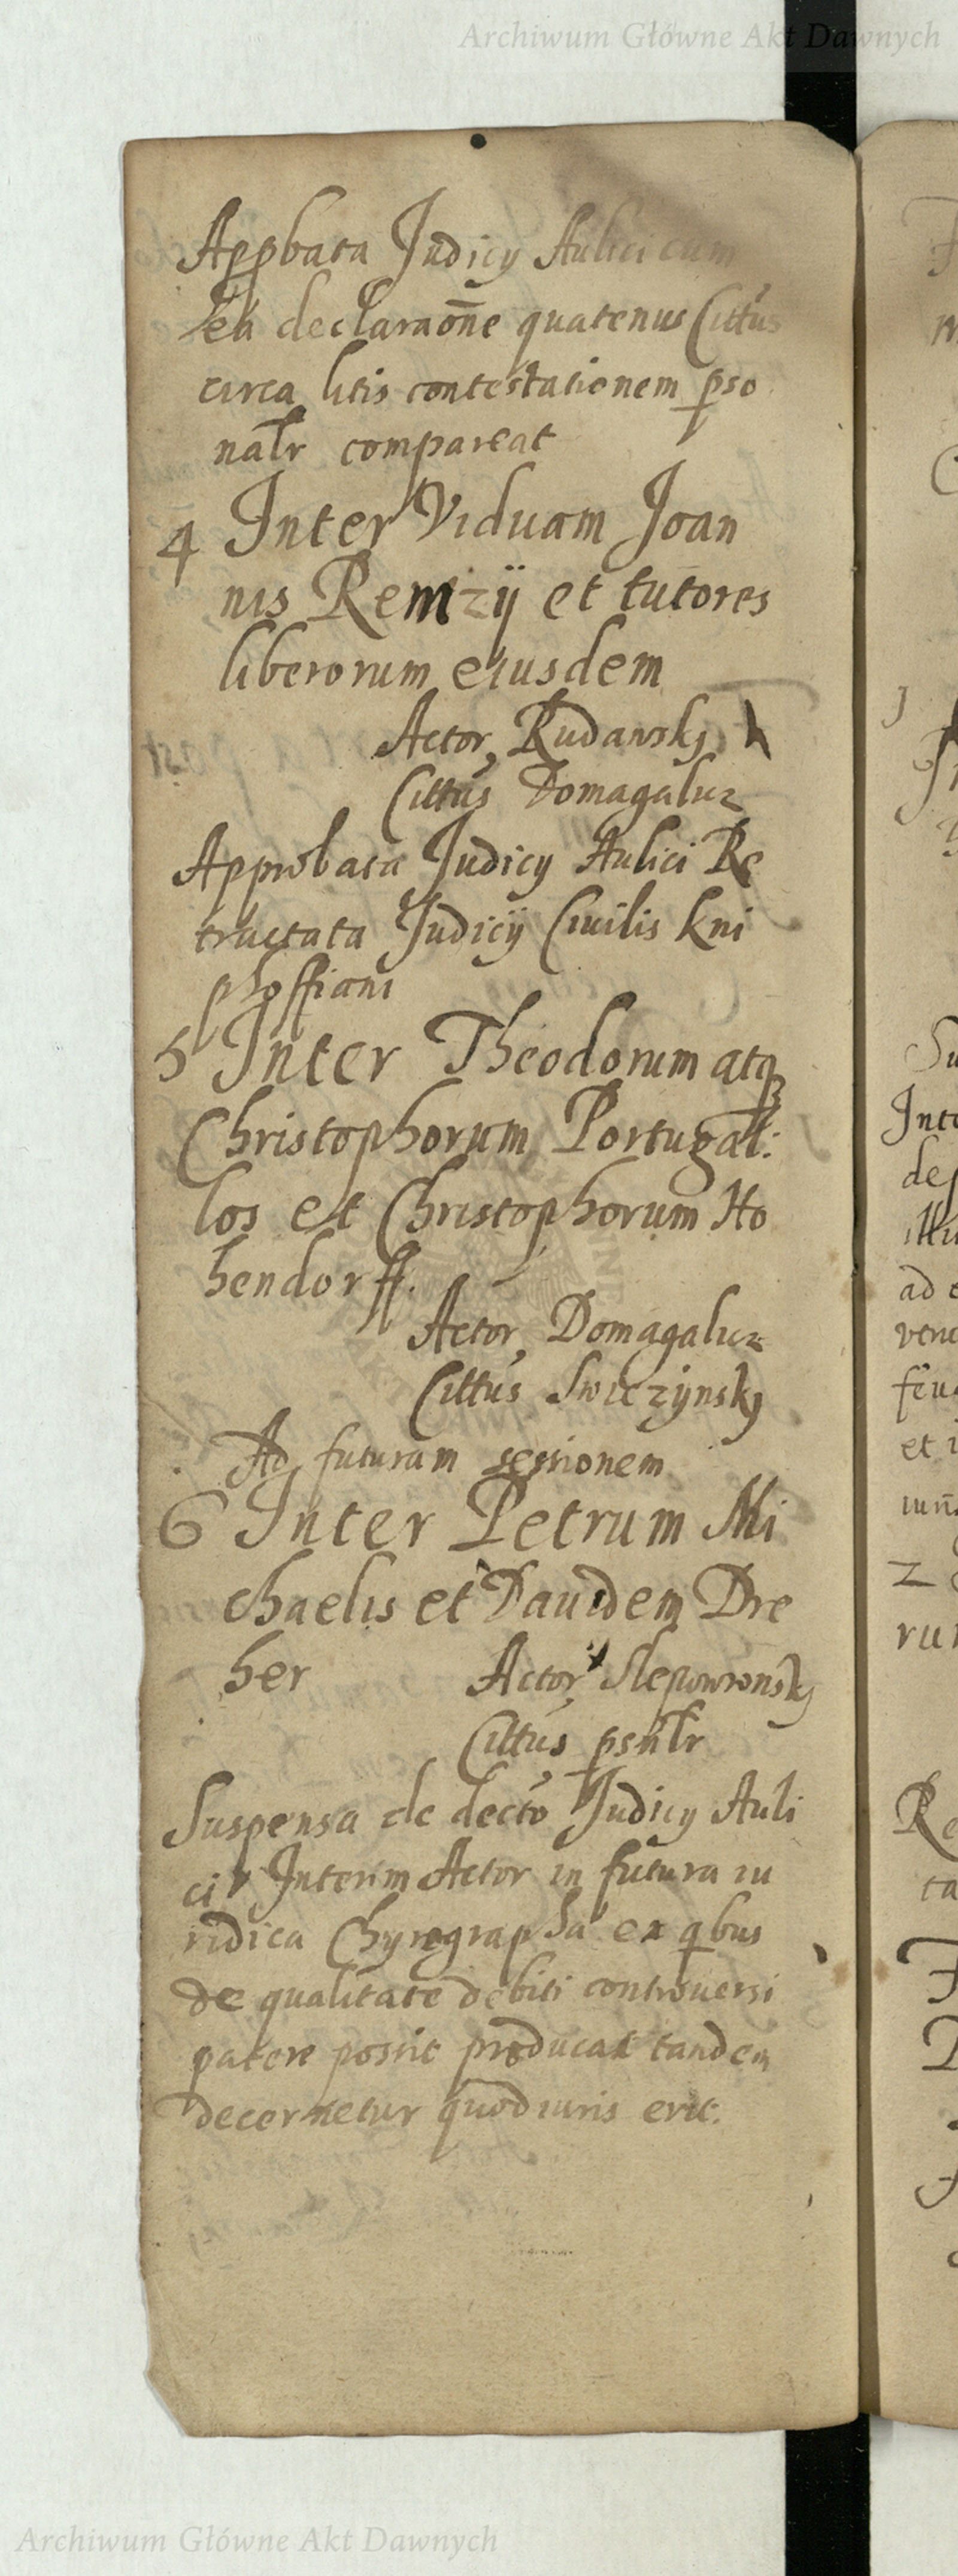 Archiwum Główne Akt Dawnych
Appbata Judicy Aulici cum
ea declaraōne quatenus Cittus
circa litis contestationem pso
nalr compareat
4 Inter Viduam Joan
nis Remzÿ et tutores
liberorum eiusdem
Actor Rudansky
Cittus Domagaluz
Approbata Judicy Aulici Re
tractata Judicÿ Ciuilis Kni
phoffiani
5 Inter Theodorum atq
Christophorum Portugal:
los et Christophorum Ho
hendorff.
Actor Domagaluz
Cittus Swiczÿnsky
Ad futuram sessionem
6 Inter Petrum Mi
chaelis et Dauidem Dre
her Actor Slepowronsky
Cittus psnlr
Suspensa de decto Judicy Auli
ci Interim Actor in futura iu
ridica Chyrographa ex qbus
de qualitate debiti controuersi
patere possit producat tandem
decernetur quod iuris erit.
Archiwum Główne Akt Dawnych